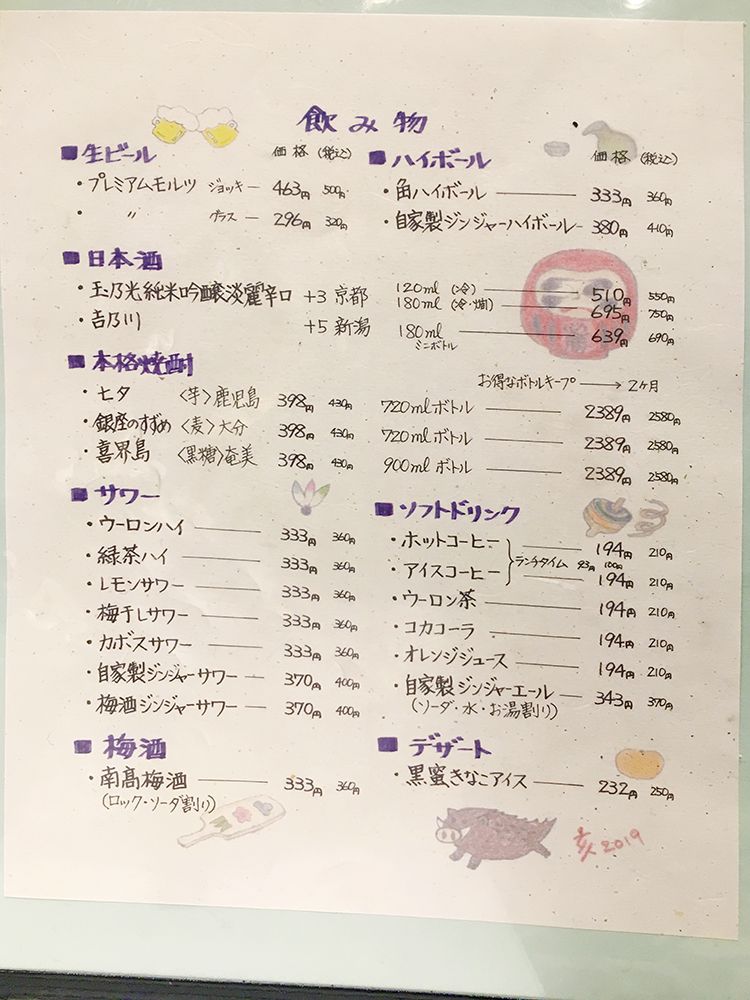 飲み物
■生ビール 価格 (税込)
・プレミアムモルツ ジョッキ 463円 500円
・ 〃 グラス 296円 320円
■ハイボール 価格 (税込)
・角ハイボール 333円 360円
・自家製ジンジャーハイボール 380円 410円
■日本酒
・玉乃光純米吟醸淡麗辛口 +3 京都 120ml (冷) 510円 550円
180ml (冷・燗) 695円 750円
・吉乃川 +5 新潟 180ml 639円 690円
ミニボトル
■本格焼酎
お得なボトルキープ → 2ヶ月
・七夕 〈芋〉鹿児島 398円 430円 720mlボトル 2389円 2580円
・銀座のすずめ 〈麦〉大分 398円 430円 720mlボトル 2389円 2580円
・喜界島 〈黒糖〉奄美 398円 430円 900mlボトル 2389円 2580円
■サワー
・ウーロンハイ 333円 360円
・緑茶ハイ 333円 360円
・レモンサワー 333円 360円
・梅干しサワー 333円 360円
・カボスサワー 333円 360円
・自家製ジンジャーサワー 370円 400円
・梅酒ジンジャーサワー 370円 400円
■ソフトドリンク
・ホットコーヒー 194円 210円
ランチタイム 93円 100円
・アイスコーヒー 194円 210円
・ウーロン茶 194円 210円
・コカコーラ 194円 210円
・オレンジジュース 194円 210円
・自家製ジンジャーエール 343円 370円
(ソーダ・水・お湯割り)
■梅酒
・南高梅酒 333円 360円
(ロック・ソーダ割り)
■デザート
・黒蜜きなこアイス 232円 250円
亥2019